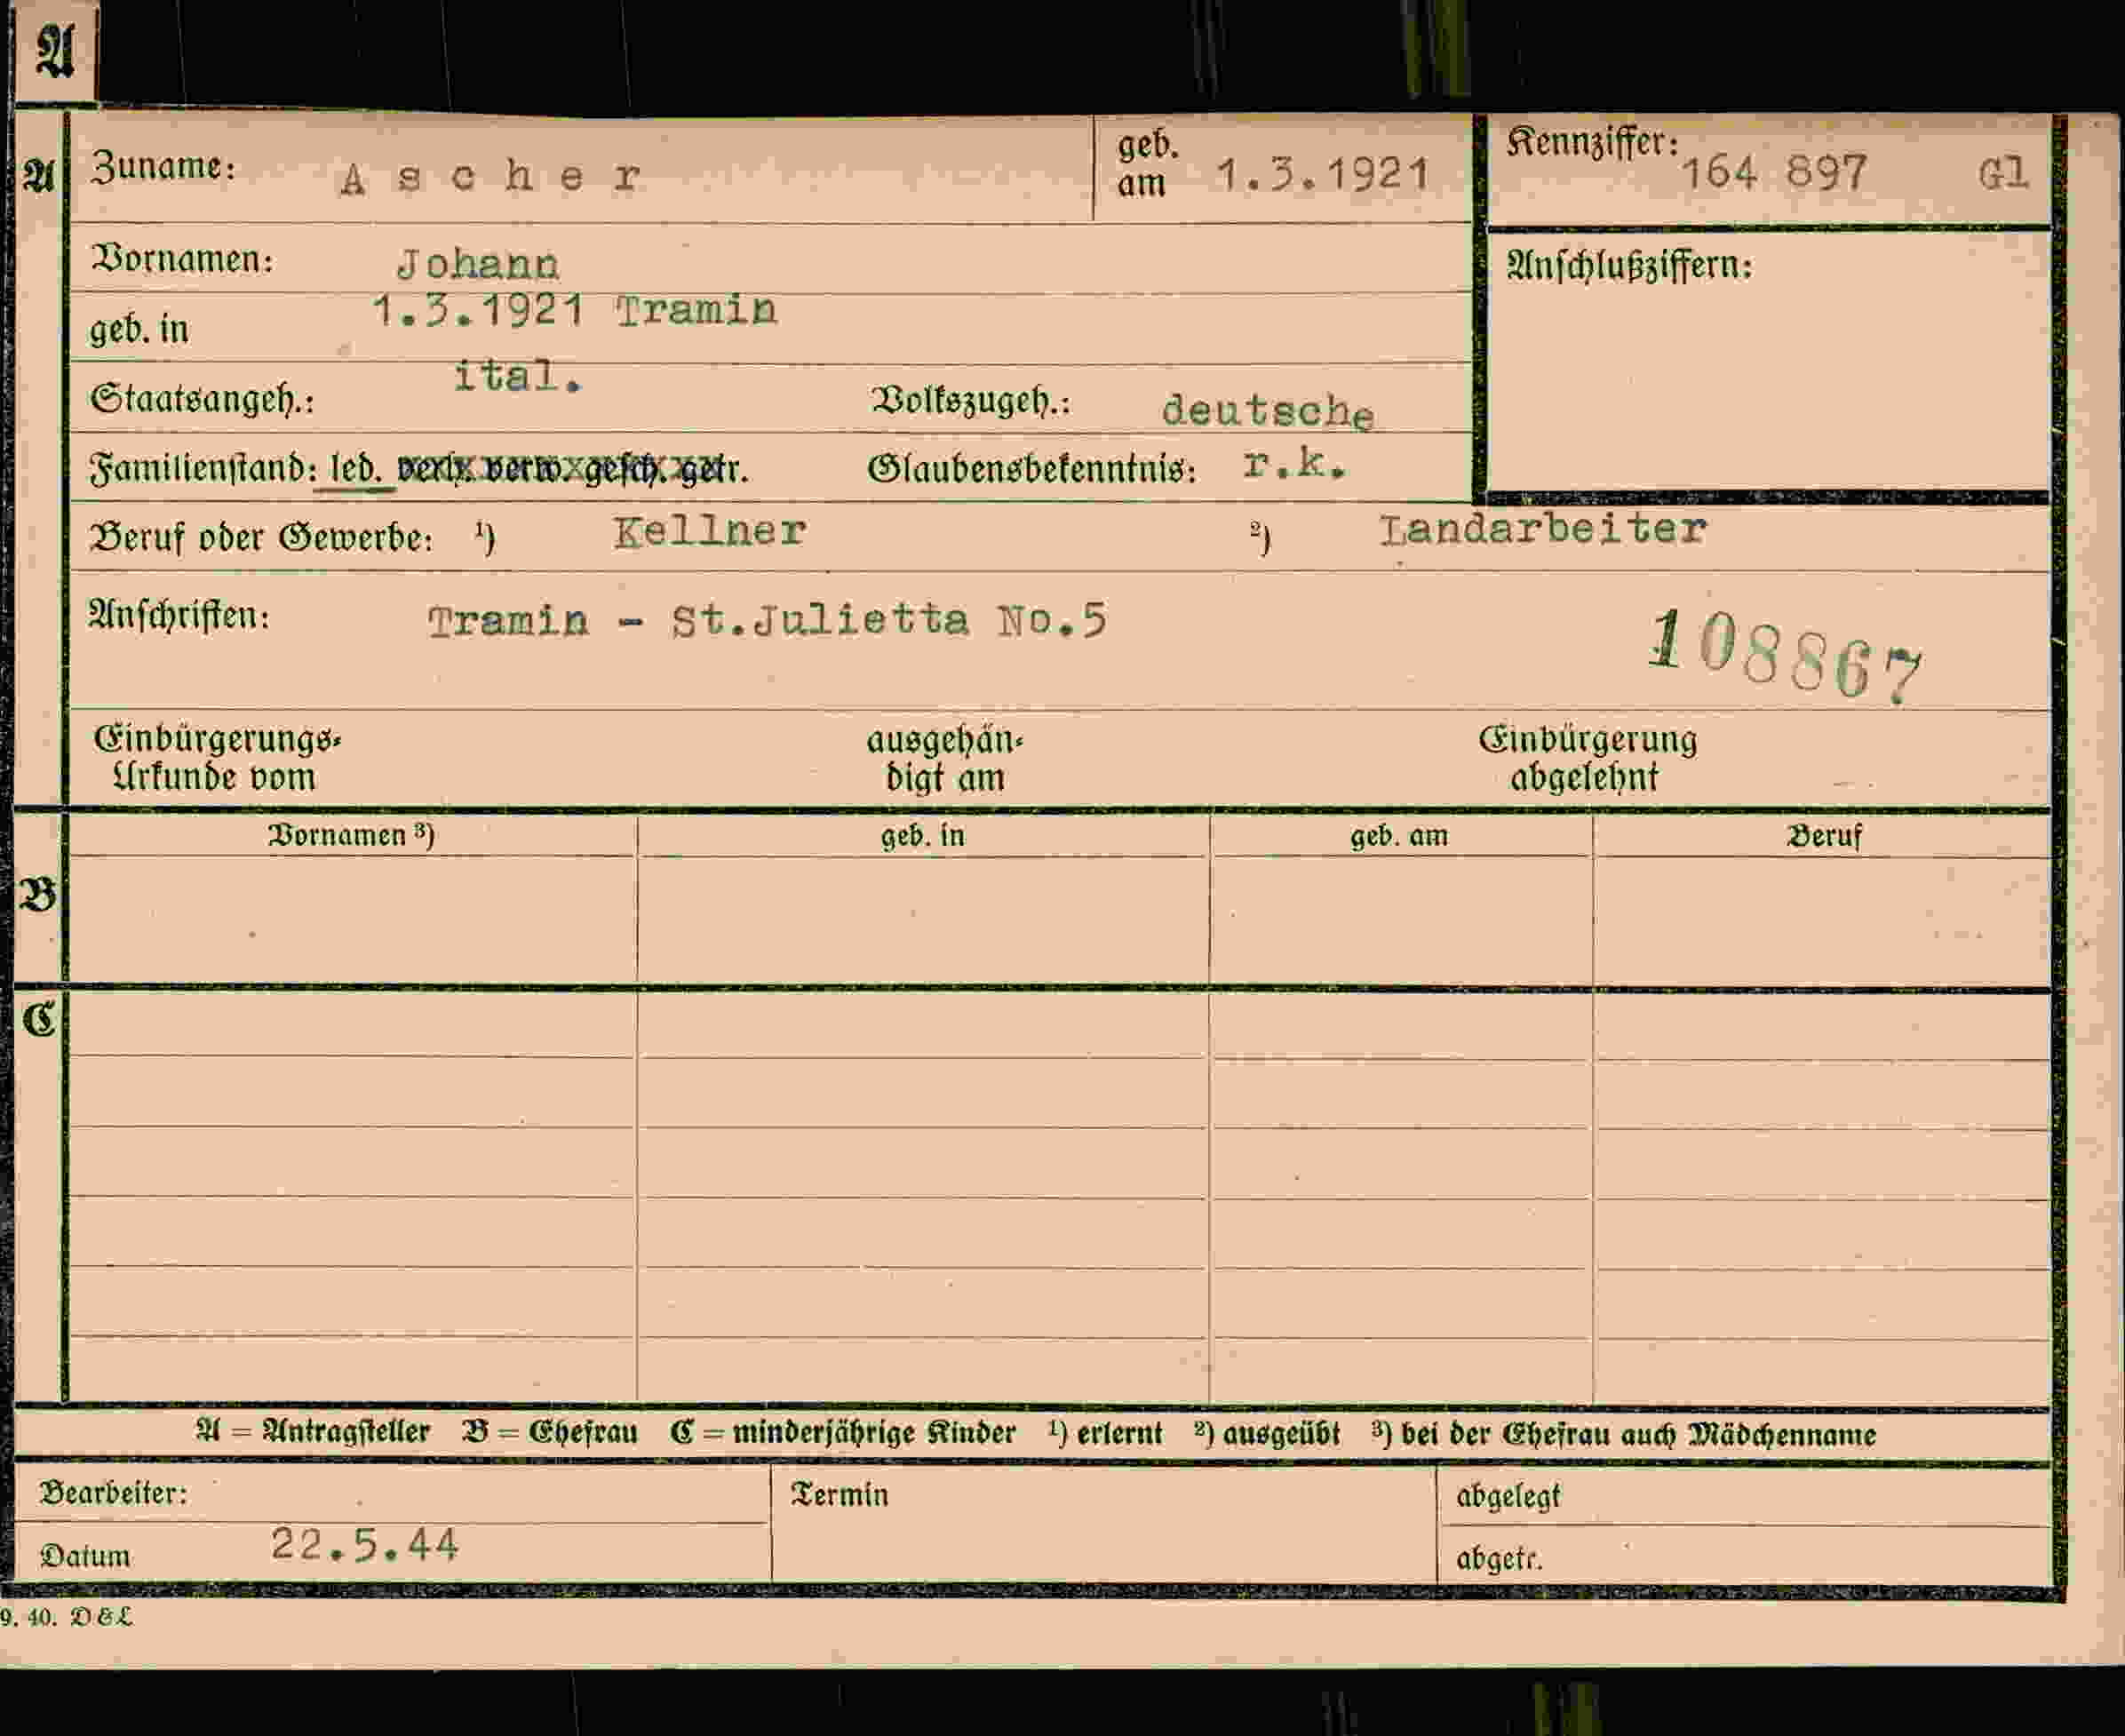 A
A Zuname: Ascher geb. am 1.3.1921 Kennziffer: 164 897 Gl
Vornamen: Johann Anschlußziffern:
geb. in 1.3.1921 Tramin
Staatsangeh.: ital. Volkszugeh.: deutsche
Familienstand: led. verh. verw. gesch. getr. Glaubensbekenntnis: r.k.
Beruf oder Gewerbe: ¹) Kellner ²) Landarbeiter
Anschriften: Tramin - St.Julietta No.5 108867
Einbürgerungs- ausgehän- Einbürgerung
Urkunde vom digt am abgelehnt
Vornamen ³) geb. in geb. am Beruf
B
C
A = Antragsteller B = Ehefrau C = minderjährige Kinder ¹) erlernt ²) ausgeübt ³) bei der Ehefrau auch Mädchenname
Bearbeiter: Termin abgelegt
Datum 22.5.44 abgetr.
9. 40. D&L